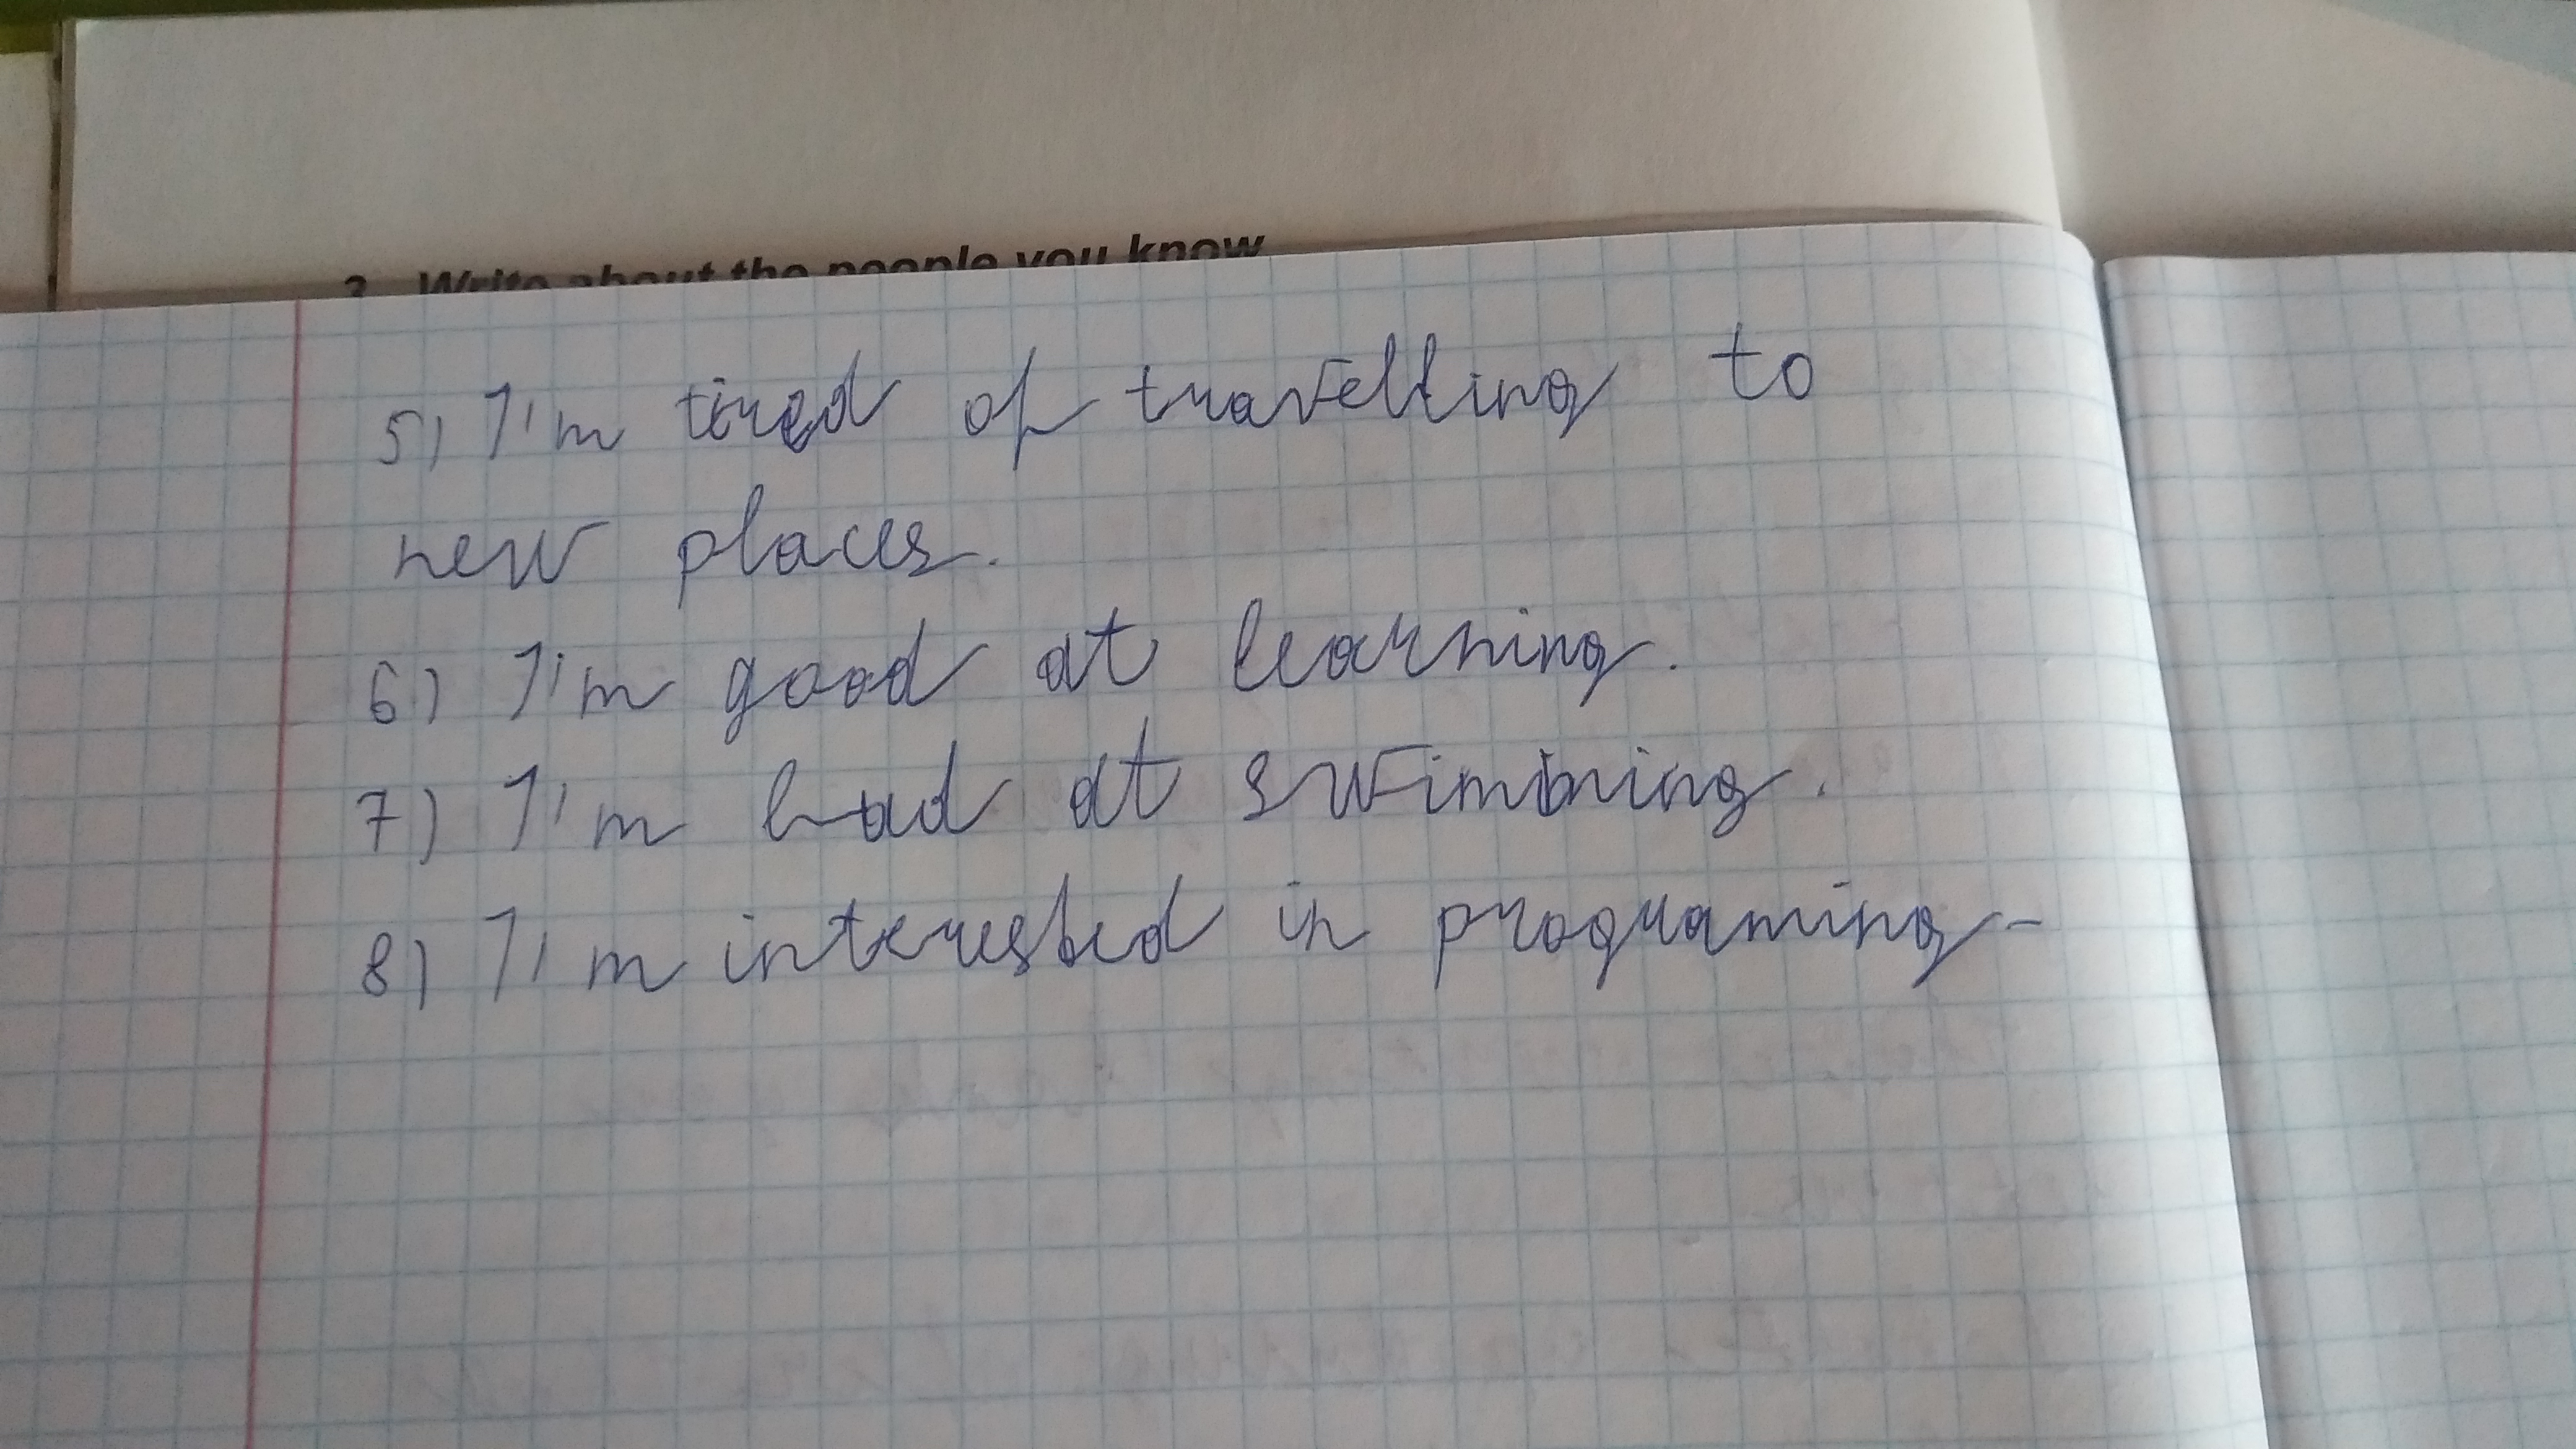 3. Write about the people you know
5) I'm tired of travelling to
new places.
6) I'm good at learning.
7) I'm bad at swimming.
8) I'm interested in programing-